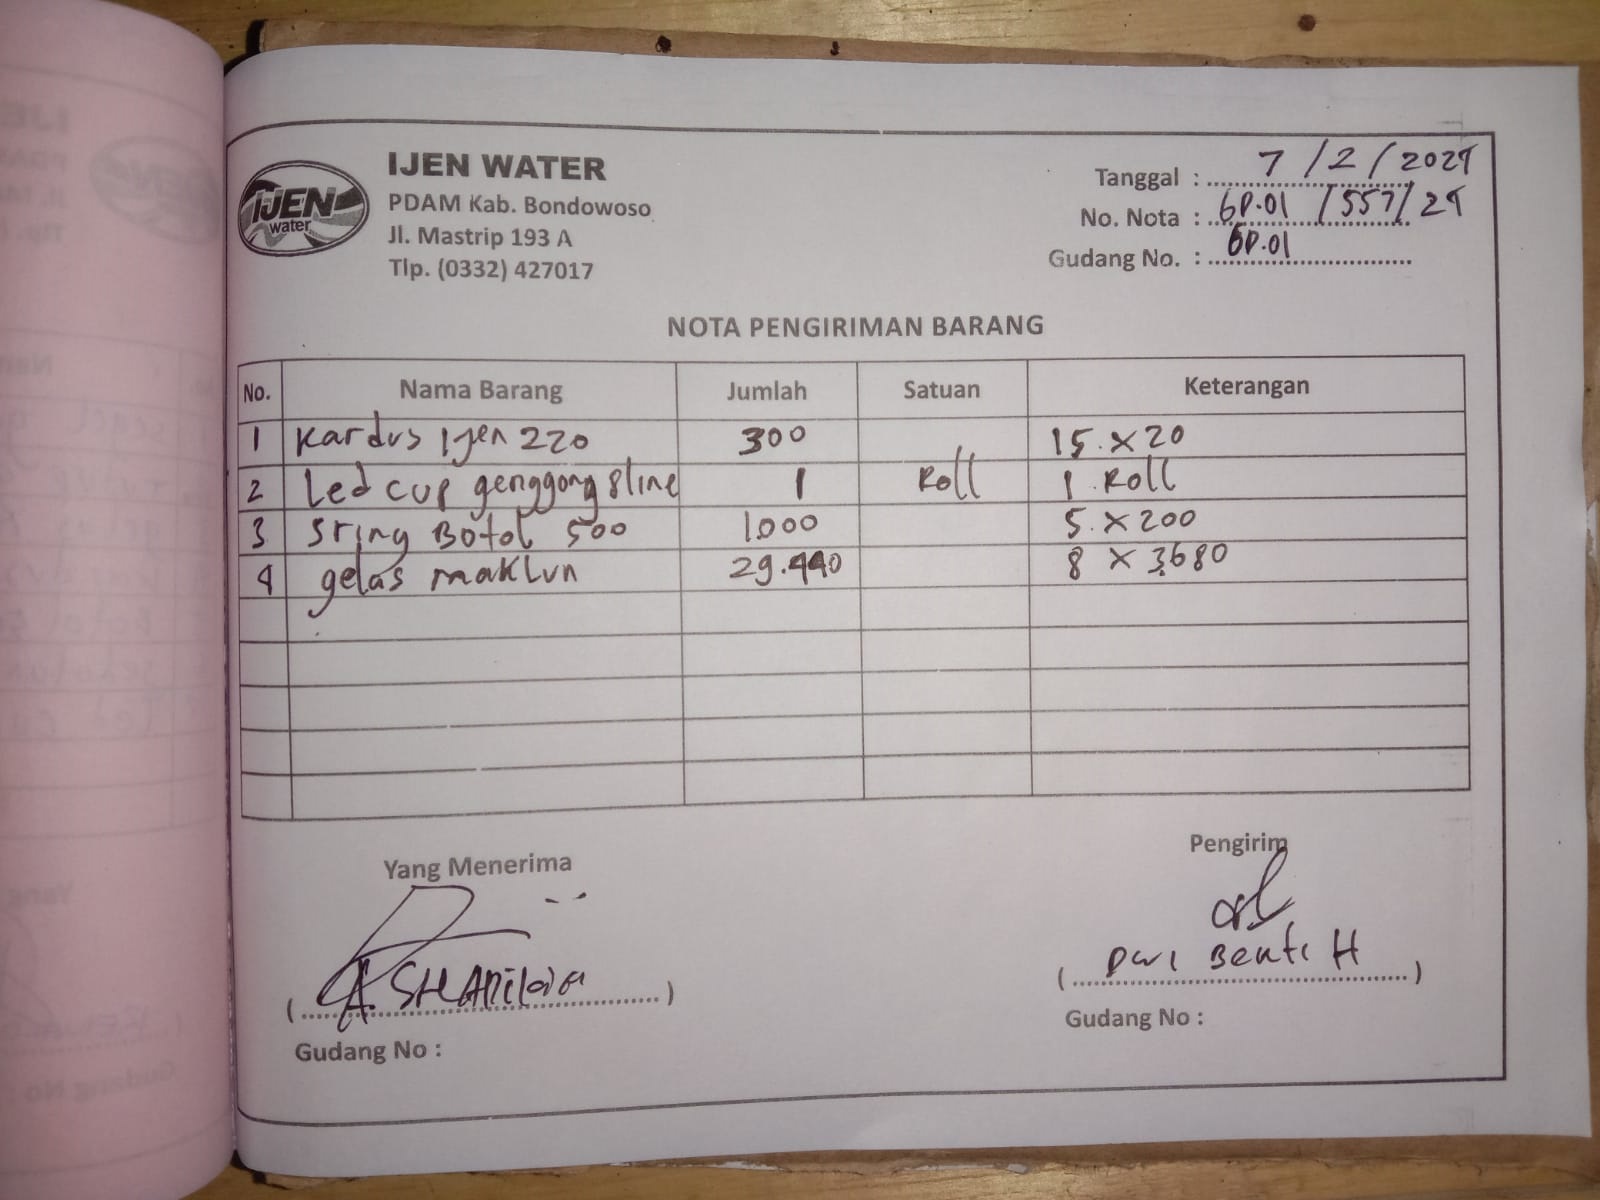 IJEN
water
IJEN WATER
PDAM Kab. Bondowoso
Jl. Mastrip 193 A
Tlp. (0332) 427017
Tanggal : 7/2/2024
No. Nota : GD.01 /557/24
Gudang No. : GD.01
NOTA PENGIRIMAN BARANG
No. Nama Barang Jumlah Satuan Keterangan
1 Kardus Ijen 220 300 15 x 20
2 Led cup genggong 8 line 1 Roll 1 Roll
3 Sring Botol 500 1.000 5 x 200
4 gelas maklun 29.440 8 x 3.680
Yang Menerima
Pengirim
( )
( Benti H )
Gudang No :
Gudang No :